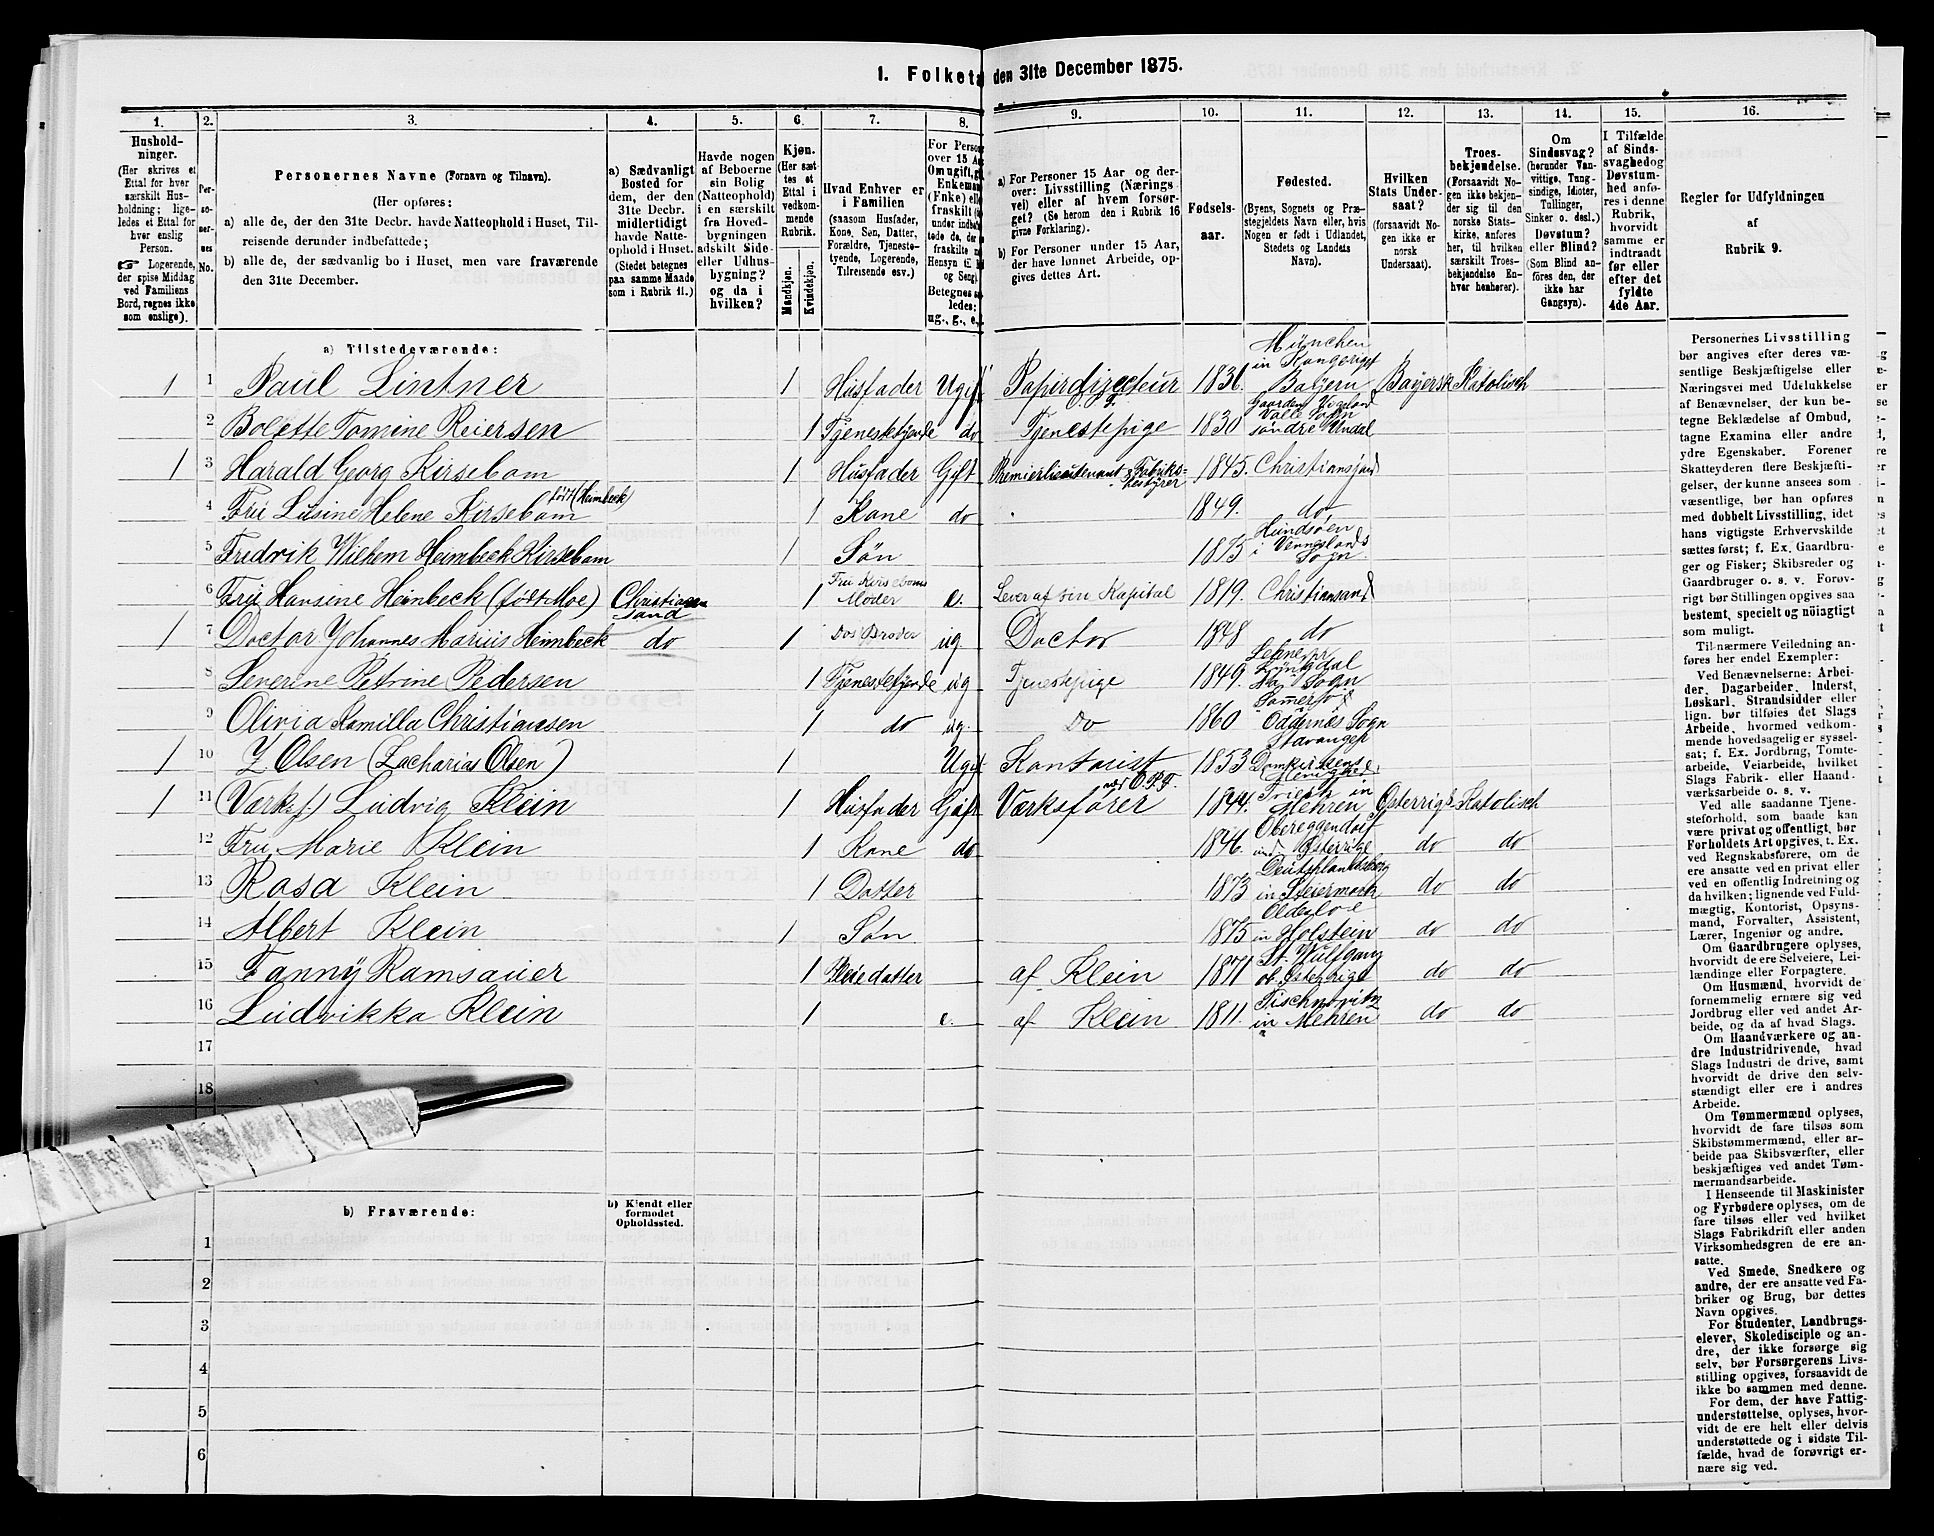 1. Folketæ den 31te December 1875.
1. 2. 3. 4. 5. 6. 7. 8. 9. 10. 11. 12. 13. 14. 15. 16.
Hushold-
ninger.
(Her skrives et
Ettal for hver
særskilt Hus-
holdning; lige-
ledes et Ettal for
hver enslig
Person.
Logerende,
der spise Middag
ved Familiens
Bord, regnes ikke
som enslige).
Per-
so-
ner-
nes
No.
Personernes Navne (Fornavn og Tilnavn).
(Her opføres:
a) alle de, der den 31te Decbr. havde Natteophold i Huset, Til-
reisende derunder indbefattede;
b) alle de, der sædvanlig bo i Huset, men vare fraværende
den 31te December.
a) Sædvanligt
Bosted for
dem, der den
31te Decbr.
midlertidigt
havde Natte-
ophold i Huset.
(Stedet betegnes
paa samme Maade
som i Rubrik 11.)
Havde nogen
af Beboerne
sin Bolig
(Natteophold)
i en særskilt
fra Hoved-
bygningen
adskilt Side-
eller Udhus-
bygning?
og da i
hvilken?
Kjøn.
(Her sæt-
tes et
Ettal i
vedkom-
mende
Rubrik.
Mandkjøn.
Kvindekjøn.
Hvad Enhver er
i Familien
(saasom Husfader,
Kone, Søn, Datter,
Forældre, Tjeneste-
tyende, Logerende,
Tilreisende osv.)
For Person
over 15 Aa
Om ugift, gi
Enkeman
(Enke) elle
fraskilt
Betegnes
ledes:
ug., g., e.,
a) For Personer 15 Aar og der-
over: Livsstilling (Nærings
vei) eller af hvem forsør-
get? (Se herom den i Rubrik 16
givne Forklaring).
b) For Personer under 15 Aar,
der have lønnet Arbeide, op-
gives dettes Art.
Fødsels-
aar.
Fødested.
(Byens, Sognets og Præ-
stegjeldets Navn eller, hvis
Nogen er født i Udlandet,
Stedets og Landets
Navn).
Hvilken
Stats Under-
saat?
(forsaavidt No-
gen ikke er
norsk
Undersaat).
Troes-
bekjendelse.
(Forsaavidt No-
gen ikke bekjen-
der sig til den
norske Stats-
kirke, anføres
her, til hvilken
særskilt Troes-
bekjendelse En-
hver henhører).
Om
Sindssvag?
(herunder Van-
vittige, Tung-
sindige, Idioter,
Tullinger,
Sinker o. desl.)
Døvstum?
eller Blind?
(Som Blind an-
føres den, der
ikke har
Gangsyn).
I Tilfælde
af Sinds-
svaghed og
Døvstum-
hed anfø-
res i denne
Rubrik,
hvorvidt
samme er
indtraadt
før eller
efter det
fyldte
4de Aar.
Regler for Udfyldningen
af
Rubrik 9.
a) Tilstedeværende:
1 1 Paul Lintner 1 Husfader Ugift Papirdirecteur 1836. München in Kongeriget Baÿern Bayersk Katolisch
2 Bolette Tomine Reiersen 1 Tjenestetyende do Tjenestepige 1830 Gaarden Vigeland Valle Sogn söndre Undal
1 3 Harald Georg Kirsebom 1 Husfader Gift Premierlieutenant & Fabriks-bestyrer 1845. Christianssand
4 Fru Lusine Helene Kirsebom født (Heimbeck) 1 Kone do 1849. do
5 Fredrik Wilhem Heimbeck Kirsebom 1 Søn 1875 Hundsöen i Venneslands Sogn
6 Fru Hansine Heimbeck (født Moe) Christiansand 1 Fru Kirseboms Moder e. Lever af sin Kapital 1819. Christianssand
1 7 Doctor Johannes Marius Heimbeck do 1 Dos Broder ug. Doctor 1848 do
8 Severine Petrine Pedersen 1 Tjenestetyende ug Tjenestepige 1849. Sogn
9 Olivia Kamilla Christiansen 1 do ug. Do 1860 Oddernæs Sogn
1 10 Z. Olsen (Zacharias Olsen) 1 Ugift Kontorist 1853 Stavanger Domkirkens Menighed
1 11 (Værksf.) Ludvig Klein 1 Husfader Gift Værksfører 1844. Triesch in Mehren Österrigs Katolisch
12 Fru Marie Klein 1 Kone do 1846. Obereggendorf Österrige do do
13 Rosa Klein 1 Datter 1873 Deutschlandsberg in Steiermark do do
14 Albert Klein 1 Søn 1875 Oldesloe in Holstein do do
15 Fanny Ramsauer 1 Pleiedatter af Klein 1871 St. Wulfgang ob. Österrige do do
16 Ludvikka Klein 1 e. af Klein 1811. Tischnovitz in Mehren do do
17
18
b) Fraværende:
b) Kjendt eller
formodet
Opholdssted.
1
2
3
4
5
6
Personernes Livsstilling
bør angives efter deres væ-
sentlige Beskjæftigelse eller
Næringsvei med Udelukkelse
af Benævnelser, der kun be-
tegne Beklædelse af Ombud,
tagne Examina eller andre
ydre Egenskaber. Forener
Skatteyderen flere Beskjæfti-
gelser, der kunne ansees som
væsentlige, bør han opføres
med dobbelt Livsstilling, idet
hans vigtigste Erhvervskilde
sættes først; f. Ex. Gaardbru-
ger og Fisker; Skibsreder og
Gaardbruger o. s. v. Forøv-
rigt bør Stillingen opgives saa
bestemt, specielt og nöiagtigt
som muligt.
Til nærmere Veiledning an-
føres her endel Exempler:
Ved Benævnelserne: Arbei-
der, Dagarbeider, Inderst,
Løskarl, Strandsidder eller
lign. bør tilføies det Slags
Arbeide, hvormed vedkom-
mende hovedsagelig er syssel-
sat; f. Ex. Jordbrug, Tomte-
arbeide, Veiarbeide, hvilket
Slags Fabrik- eller Haand-
værksarbeide o. s. v.
Ved alle saadanne Tjene-
steforhold, som baade kan
være privat og offentligt, bør
Forholdets Art opgives, t. Ex.
ved Regnskabsførere, om de
ere ansatte ved en privat eller
ved en offentlig Indretning og
da hvilken; lignende ved Fuld-
mægtig, Kontorist, Opsyns-
mand, Forvalter, Assistent,
Lærer, Ingeniør og andre.
Om Gaardbrugere oplyses,
hvorvidt de ere Selveiere, Lei-
lændinge eller Forpagtere.
Om Husmænd, hvorvidt de
fornemmelig ernære sig ved
Jordbrug eller ved andet Ar-
beide, og da af hvad Slags.
Om Haandværkere og an-
dre Industridrivende, hvad
Slags Industri de drive, samt
hvorvidt de drive den selv-
stændigt eller ere i andres
Arbeide.
Om Tømmermænd oplyses,
hvorvidt de fare tilsøs som
Skibstømmermænd, eller ar-
beide paa Skibsværfter, eller
beskjæftiges ved andet Tøm-
mermandsarbeide.
I Henseende til Maskinister
og Fyrbødere oplyses, om de
fare tilsøs eller ved hvilket
Slags Fabrikdrift eller anden
Virksomhedsgren de ere an-
satte.
Ved Smede, Snedkere og
andre, der ere ansatte ved Fa-
briker og Brug, bør dettes
Navn opgives.
For Studenter, Landbrugs-
elever, Skoledisciple og an-
dre, der ikke forsørge sig
selv, bør Forsørgerens Livs-
stilling opgives, forsaavidt de
ikke bo sammen med denne.
For dem, der have Fattig-
understøttelse, oplyses, hvor-
vidt de ere helt eller delvis
understøttede og i sidste Til-
fælde, hvad de forøvrigt er-
nære sig ved.